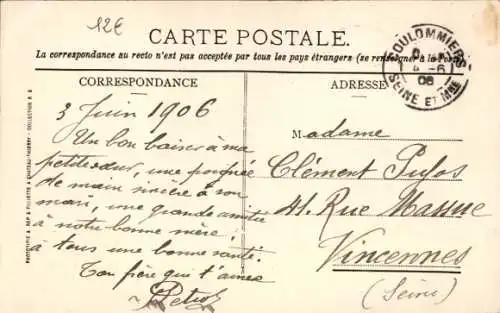 12€
CARTE POSTALE.
La correspondance au recto n'est pas acceptée par tous les pays étrangers (se renseigner à la Poste)
COULOMMIERS
4 -6
06
SEINE ET MNE
CORRESPONDANCE
ADRESSE
3 Juin 1906
Un bon baiser à ma
petite sœur, une poignée
de main sincère à son
mari, une grande amitié
à notre bonne mère
à tous une bonne santé.
Ton frère qui t'aime
Madame
Clément Pufos
41, Rue Massue
Vincennes
(Seine)